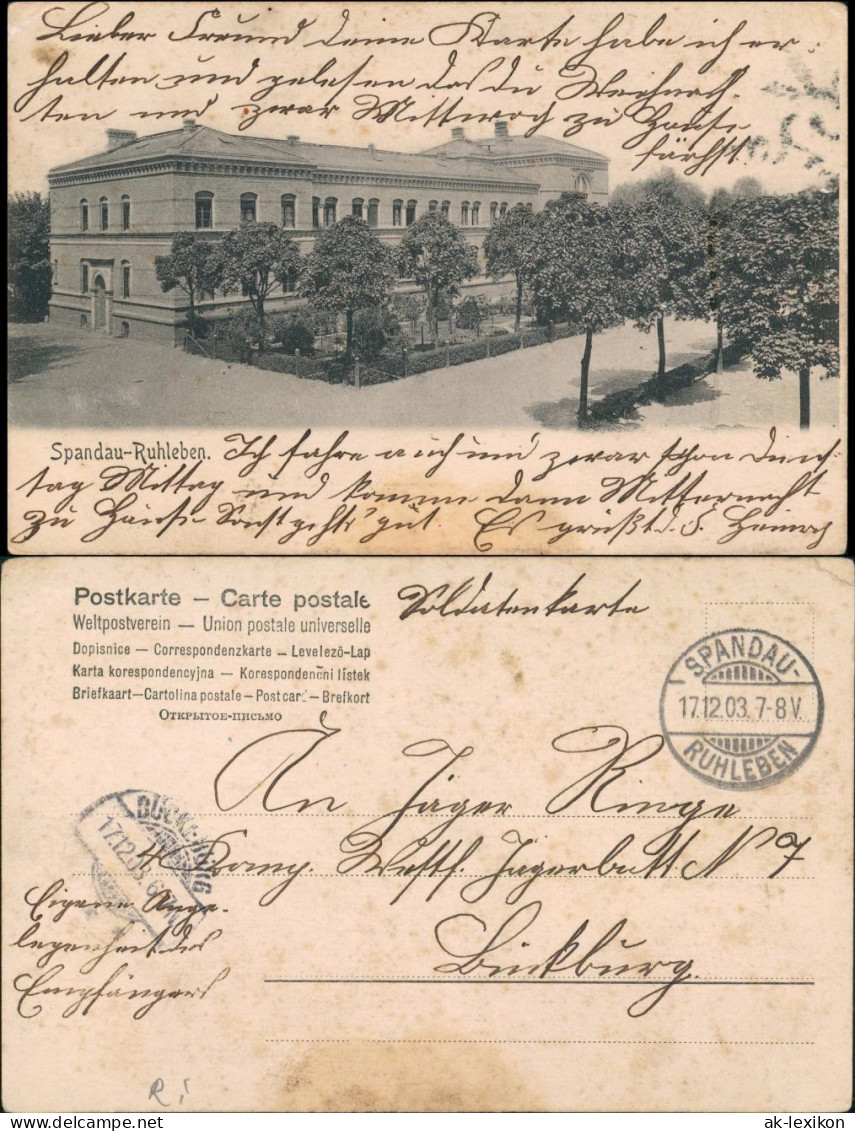 Lieber Freund deine Karte habe ich er-
halten und gelesen das du Weihnach-
ten und zwar Mittwoch zu Hause
fährst.
Spandau-Ruhleben. Ich fahre auch und zwar schon Diens
tag Mittag und komme dann Mitternacht
zu Hause. Sonst gehts gut. Es grüßt d. F. Heinrich
Postkarte — Carte postale
Weltpostverein — Union postale universelle
Dopisnice — Correspondenzkarte — Levelező-Lap
Karta korespondencyjna — Korespondenční lístek
Briefkaart—Cartolina postale—Post card—Brefkort
Открытое-письмо
Soldatenkarte
SPANDAU-
17.12.03. 7-8 V.
RUHLEBEN
BÜCKEBURG
17.12.03.
An Jäger Ringe
4 Komp. Westf. Jägerbatt N 7
Bückburg.
Eigene Ange-
legenheit des
Empfängers
R!
ak-lexikon